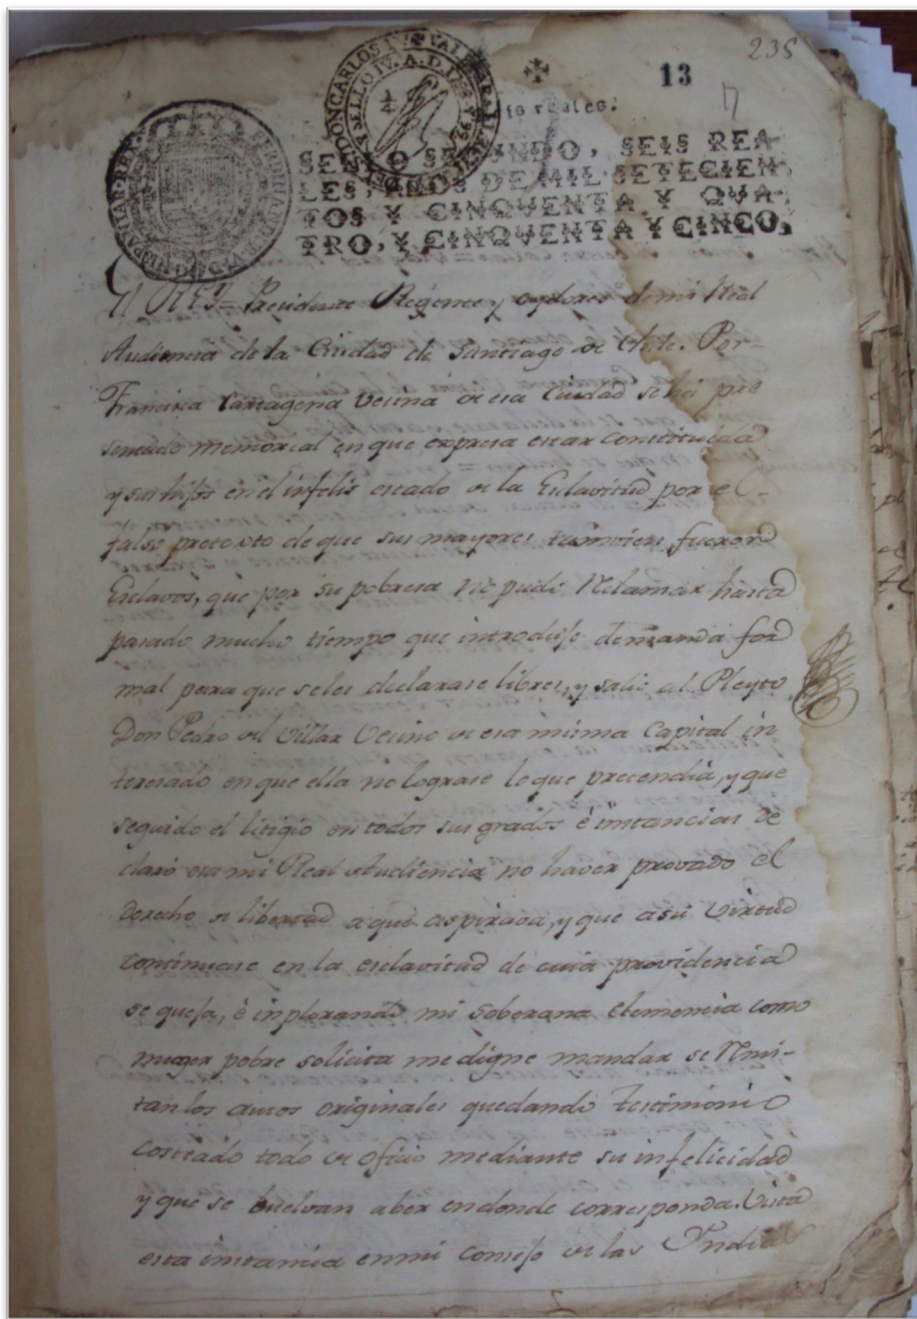 235
13
DON CARLOS IV
is reales.
SELLO SEGUNDO, SEIS REA-
LES, AÑOS DE MIL SETECIEN,
TOS Y CINQUENTA Y QUA-
TRO, Y CINQUENTA Y CINCO,
El Rey = Presidente Regente y oydores de mi Real
Audiencia de la Ciudad de Santiago de Chile. Por-
Francisca Cartagena Vecina de esa Ciudad se hà pre
sentado memorial en que expresa estar constituida
y sus hijos en el infelis estado de la Esclavitud por el-
falso pretexto de que sus mayores tambien fueron
Esclavos, que por su pobresa no pudo Reclamar hasta
pasado mucho tiempo que introdujo demanda for
mal para que se les declarase libres, y saliò al Pleyto
Don Pedro del Villar Vecino de esa misma Capital in
teresado en que ella no lograse lo que pretendia, y que
seguido el litigio en todos sus grados è instancias de
clarò esa mi Real Audiencia no haver provado el
derecho de libertad a que aspirava, y que a su virtud
continuase en la esclavitud de cuia providencia
se queja, è inplorando mi soberana clemencia como
muger pobre solicita me digne mandar se Remi-
tan los autos originales quedando Testimonio
costeado todo de oficio mediante su infelicidad
y que se buelvan aber en donde corresponda. Vista
esta instancia en mi Consejo de las Indias